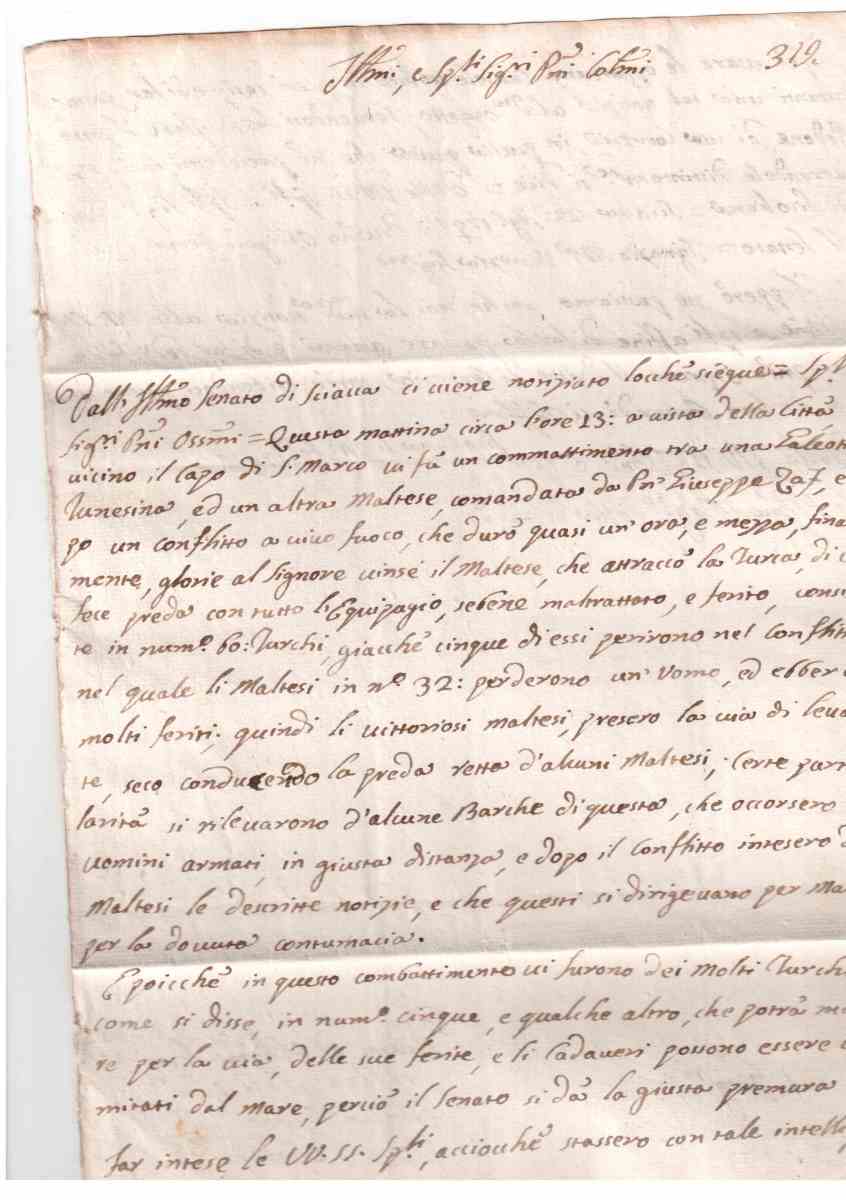 Ill.mi, e Sp.ti Sig.ri P.ni Col.mi 319.
Dall' Ill.mo Senato di Sciacca ci viene notiziato locchè siegue = Sp.ti
Sig.ri P.ni Oss.mi = Questa mattina circa l'ore 13: a vista della Città
vicino il Capo di S. Marco vi fù un commattimento tra una Galeott
Tunesina, ed un altra Maltese, comandata da P.n Giuseppe e
po un conflitto a vivo fuoco, che durò quasi un' ora, e mezza, fina
mente, glorie al Signore vinse il Maltese, che attraccò la Turca, di c
fece preda con tutto l'Equipagio, sebene maltrattato, e ferito, consi
te in num.o 60: Turchi, giacchè cinque di essi perirono nel Conflitt
nel quale li Maltesi in n.o 32: perderono un' Uomo, ed ebber
molti feriti; quindi li vittoriosi maltesi, presero la via di leva
te, seco conducendo la preda retta d'alcuni Maltesi; Certe part
larità si rilevarono d'alcune Barche di questa, che occorsero
uomini armati, in giusta distanza, e dopo il Conflitto intesero d
Maltesi le descritte notizie, e che questi si dirigevano per Ma
per la dovuta contumacia.
E poicchè in questo combattimento vi furono dei Molti Turch
come si disse, in num.o cinque, e qualche altro, che potrà mo
re per la via, delle sue ferite, e li Cadaveri possono essere
mitati dal mare, perciò il Senato si dà la giusta premura
far intese le VV. SS. Sp.ti, acciocchè stassero con tale intelli